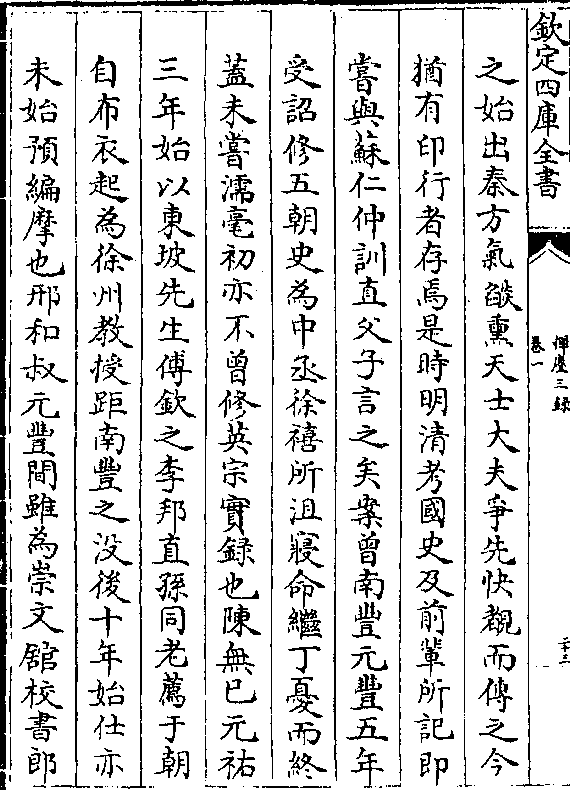 欽定四庫全書
揮麈三録
卷一
二十三
之始出秦方氣燄熏天士大夫爭先快覩而傳之今
猶有印行者存焉是時明清考國史及前輩所記即
嘗與蘇仁仲訓直父子言之矣案曾南豐元豐五年
受詔修五朝史為中丞徐禧所沮寢命繼丁憂而終
蓋未嘗濡毫初亦不曾修英宗實録也陳無已元祐
三年始以東坡先生傅欽之李邦直孫同老薦于朝
自布衣起為徐州教授距南豐之没後十年始仕亦
未始預編摩也邢和叔元豐間雖為崇文館校書郎